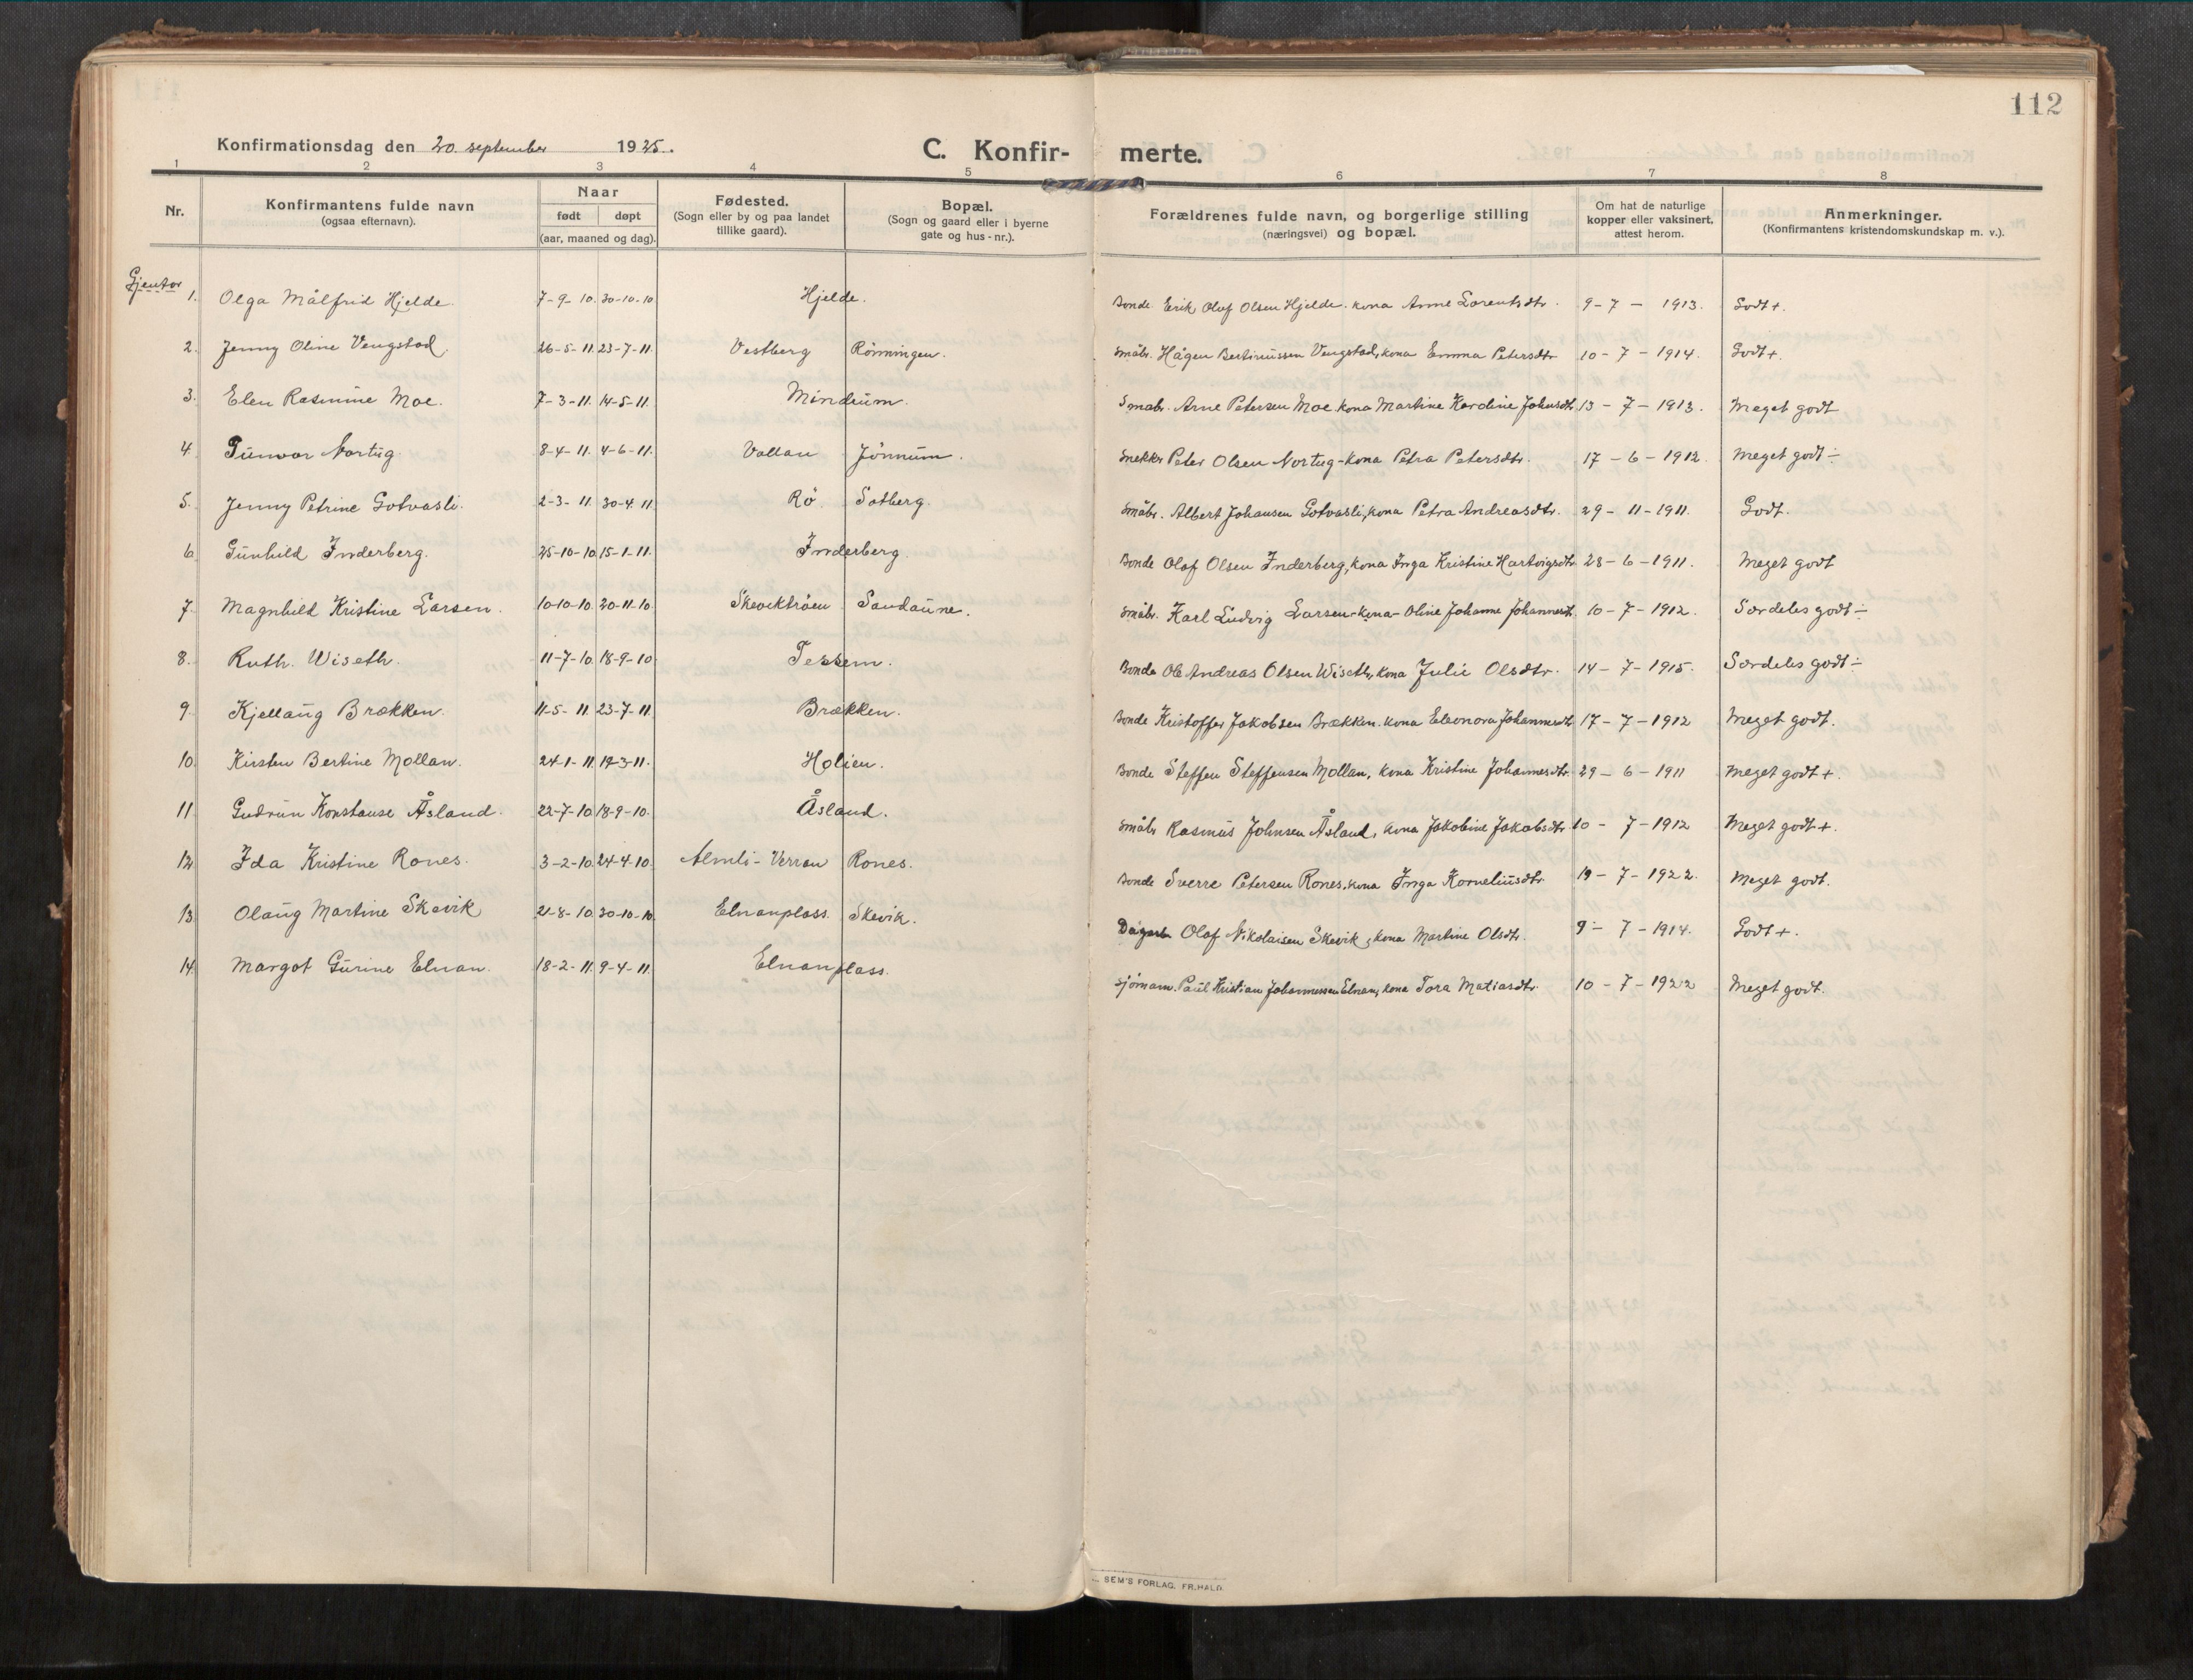 112
Konfirmationsdag den 20. september 1925. C. Konfir- merte.
1 2 3 4 5 6 7 8
Nr. Konfirmantens fulde navn (ogsaa efternavn). Naar født døpt (aar, maaned og dag). Fødested. (Sogn eller by og paa landet tillike gaard). Bopæl. (Sogn og gaard eller i byerne gate og hus-nr.). Forældrenes fulde navn, og borgerlige stilling (næringsvei) og bopæl. Om hat de naturlige kopper eller vaksinert, attest herom. Anmerkninger. (Konfirmantens kristendomskundskap m. v.).
Gjentor
1. Olga Målfrid Hjelde. 7-9-10. 30-10-10 Hjelde. Bonde Erik Olof Olsen Hjelde. kona Anne Lorentsdtr. 9-7-1913. Godt+.
2. Jenny Oline Vengstad. 26-5-11. 23-7-11. Vestberg Rönningen. Småbr. Hågen Bertinussen Vengstad, kona Emma Petersdtr 10-7-1914. Godt+.
3. Elen Rasmine Moe. 7-3-11. 14-5-11. Mindrum. Småbr. Arne Petersen Moe. kona Martine Karoline Johnsdtr 13-7-1913. Meget godt
4. Gunvor Nortug. 8-4-11. 4-6-11. Vollan Jönnum. Snekker Peter Olsen Nortug-kona Petra Petersdtr. 17-6-1912. Meget godt÷
5. Jenny Petrine Gotvasli. 2-3-11. 30-4-11 Rö. Sotberg. Småbr. Albert Johansen Gotvasli, kona Petra Andreasdtr. 29-11-1911. Godt.
6. Gunhild Inderberg. 25-10-10 15-1-11. Inderberg Bonde Olaf Olsen Inderberg, kona Inga Kristine Hartvigsdtr 28-6-1911. Meget godt
7. Magnhild Kristine Larsen. 10-10-10 20-11-10. Skevikträen Sandaune. Småbr. Karl Ludvig Larsen-kona-Oline Johanne Johannesdtr. 10-7-1912. Særdeles godt÷
8. Ruth. Wiseth. 11-7-10. 18-9-10 Tessem. Bonde Ole Andreas Olsen Wiseth, kona Julie Olsdtr. 14-7-1915. Særdeles godt÷
9. Kjellaug Brækken. 11-5-11. 23-7-11 Brækken. Bonde Kristoffer Jakobsen Brækken. kona Eleonora Johannesdtr. 17-7-1912 Meget godt.
10. Kirsten Bertine Mollan. 24-1-11. 12-3-11. Holien. Bonde Steffen Steffensen Mollan, kona Kristine Johannesdtr. 29-6-1911 Meget godt+.
11. Gudrun Konstanse Åsland. 22-7-10. 18-9-10. Åsland. Småbr. Rasmus Johnsen Åsland, kona Jakobine Jakobsdtr 10-7-1912 Meget godt+.
12. Ida Kristine Rones. 3-2-10. 24-4-10. Almli-Verran Rones. Bonde Sverre Petersen Rones, kona Inga Korneliusdtr. 19-7-1922. Meget godt.
13. Olaug Martine Skevik 21-8-10. 30-10-10. Elnanplass. Skevik. Dagarb. Olaf Nikolaisen Skevik, kona Martine Olsdtr. 9-7-1914. Godt+.
14. Margot Gurine Elnan. 18-2-11. 9-4-11. Elnanplass. Sjömann. Paul Kristian Johannessen Elnan, kona Tora Matiasdtr. 10-7-1922 Meget godt.
SEM'S FORLAG. FR.HALD.